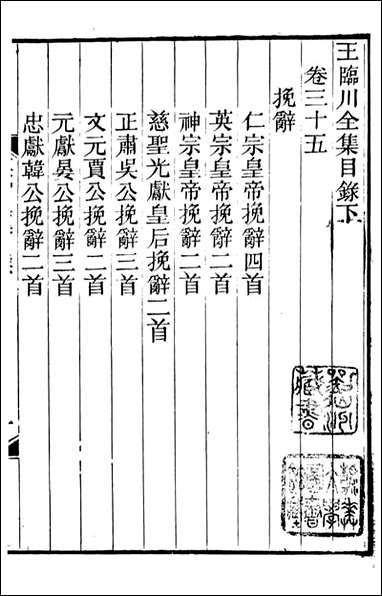 王臨川全集目錄下
卷三十五
挽辭
仁宗皇帝挽辭四首
英宗皇帝挽辭二首
神宗皇帝挽辭二首
慈聖光獻皇后挽辭二首
正肅吳公挽辭三首
文元賈公挽辭二首
元獻晏公挽辭三首
忠獻韓公挽辭二首